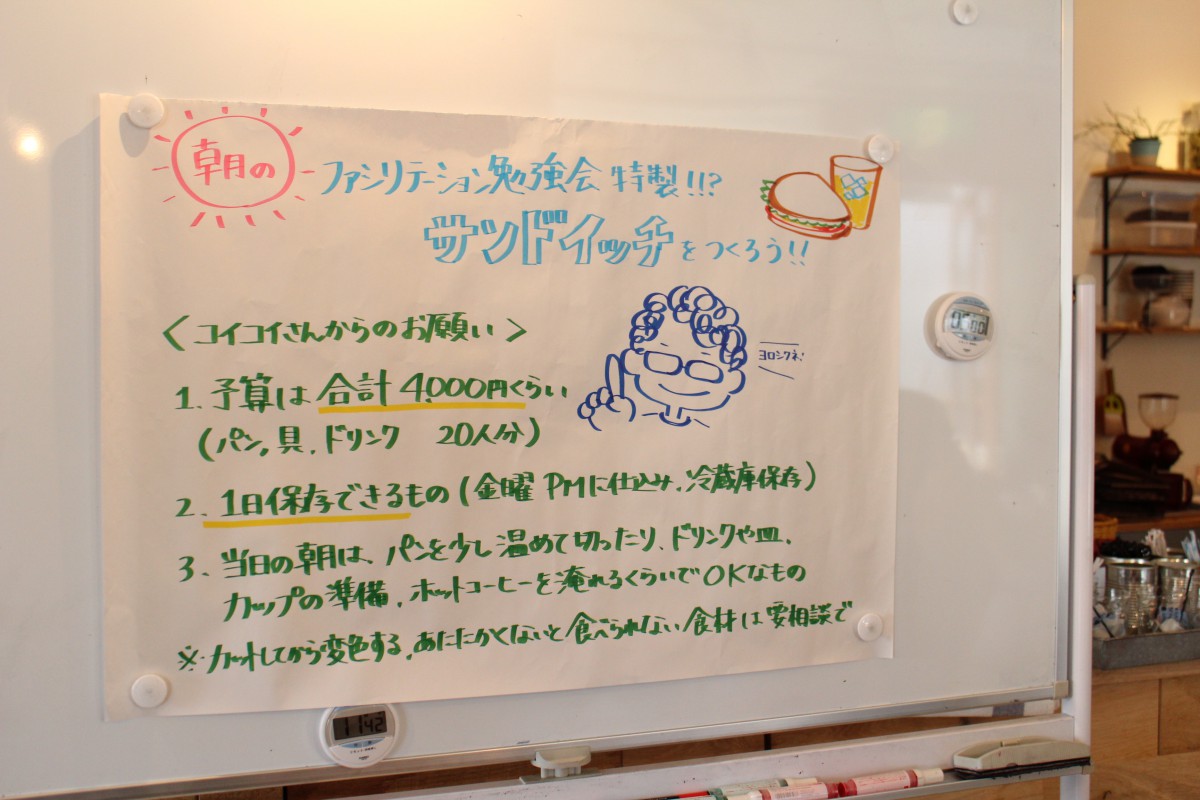 朝の ファシリテーション勉強会 特製!!?
サンドイッチをつくろう!!
<コイコイさんからのお願い>
ヨロシクネ!
1. 予算は 合計 4,000円くらい
(パン, 具, ドリンク 20人分)
2. 1日保存できるもの (金曜 PMに仕込み, 冷蔵庫保存)
3. 当日の朝は、パンを少し温めて切ったり、ドリンクや皿,
カップの準備, ホットコーヒーを淹れるくらいでOKなもの
※カットしてから変色する, あたたかくないと食べられない食材は要相談で
11:42